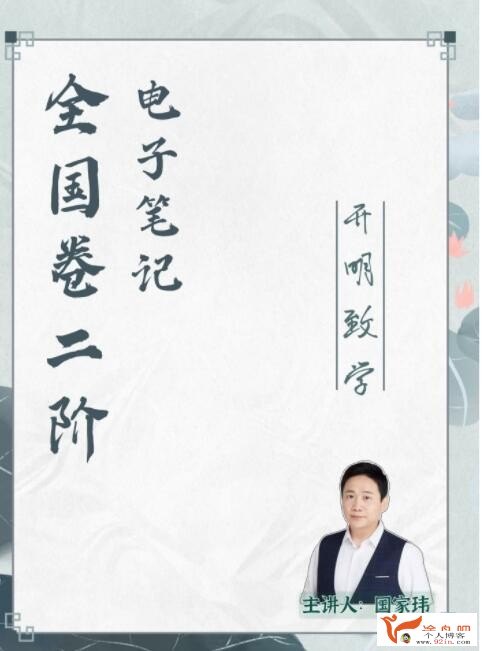 全国卷二阶
电子笔记
开明致学
主讲人：国家玮
个人博客
www.92in.com